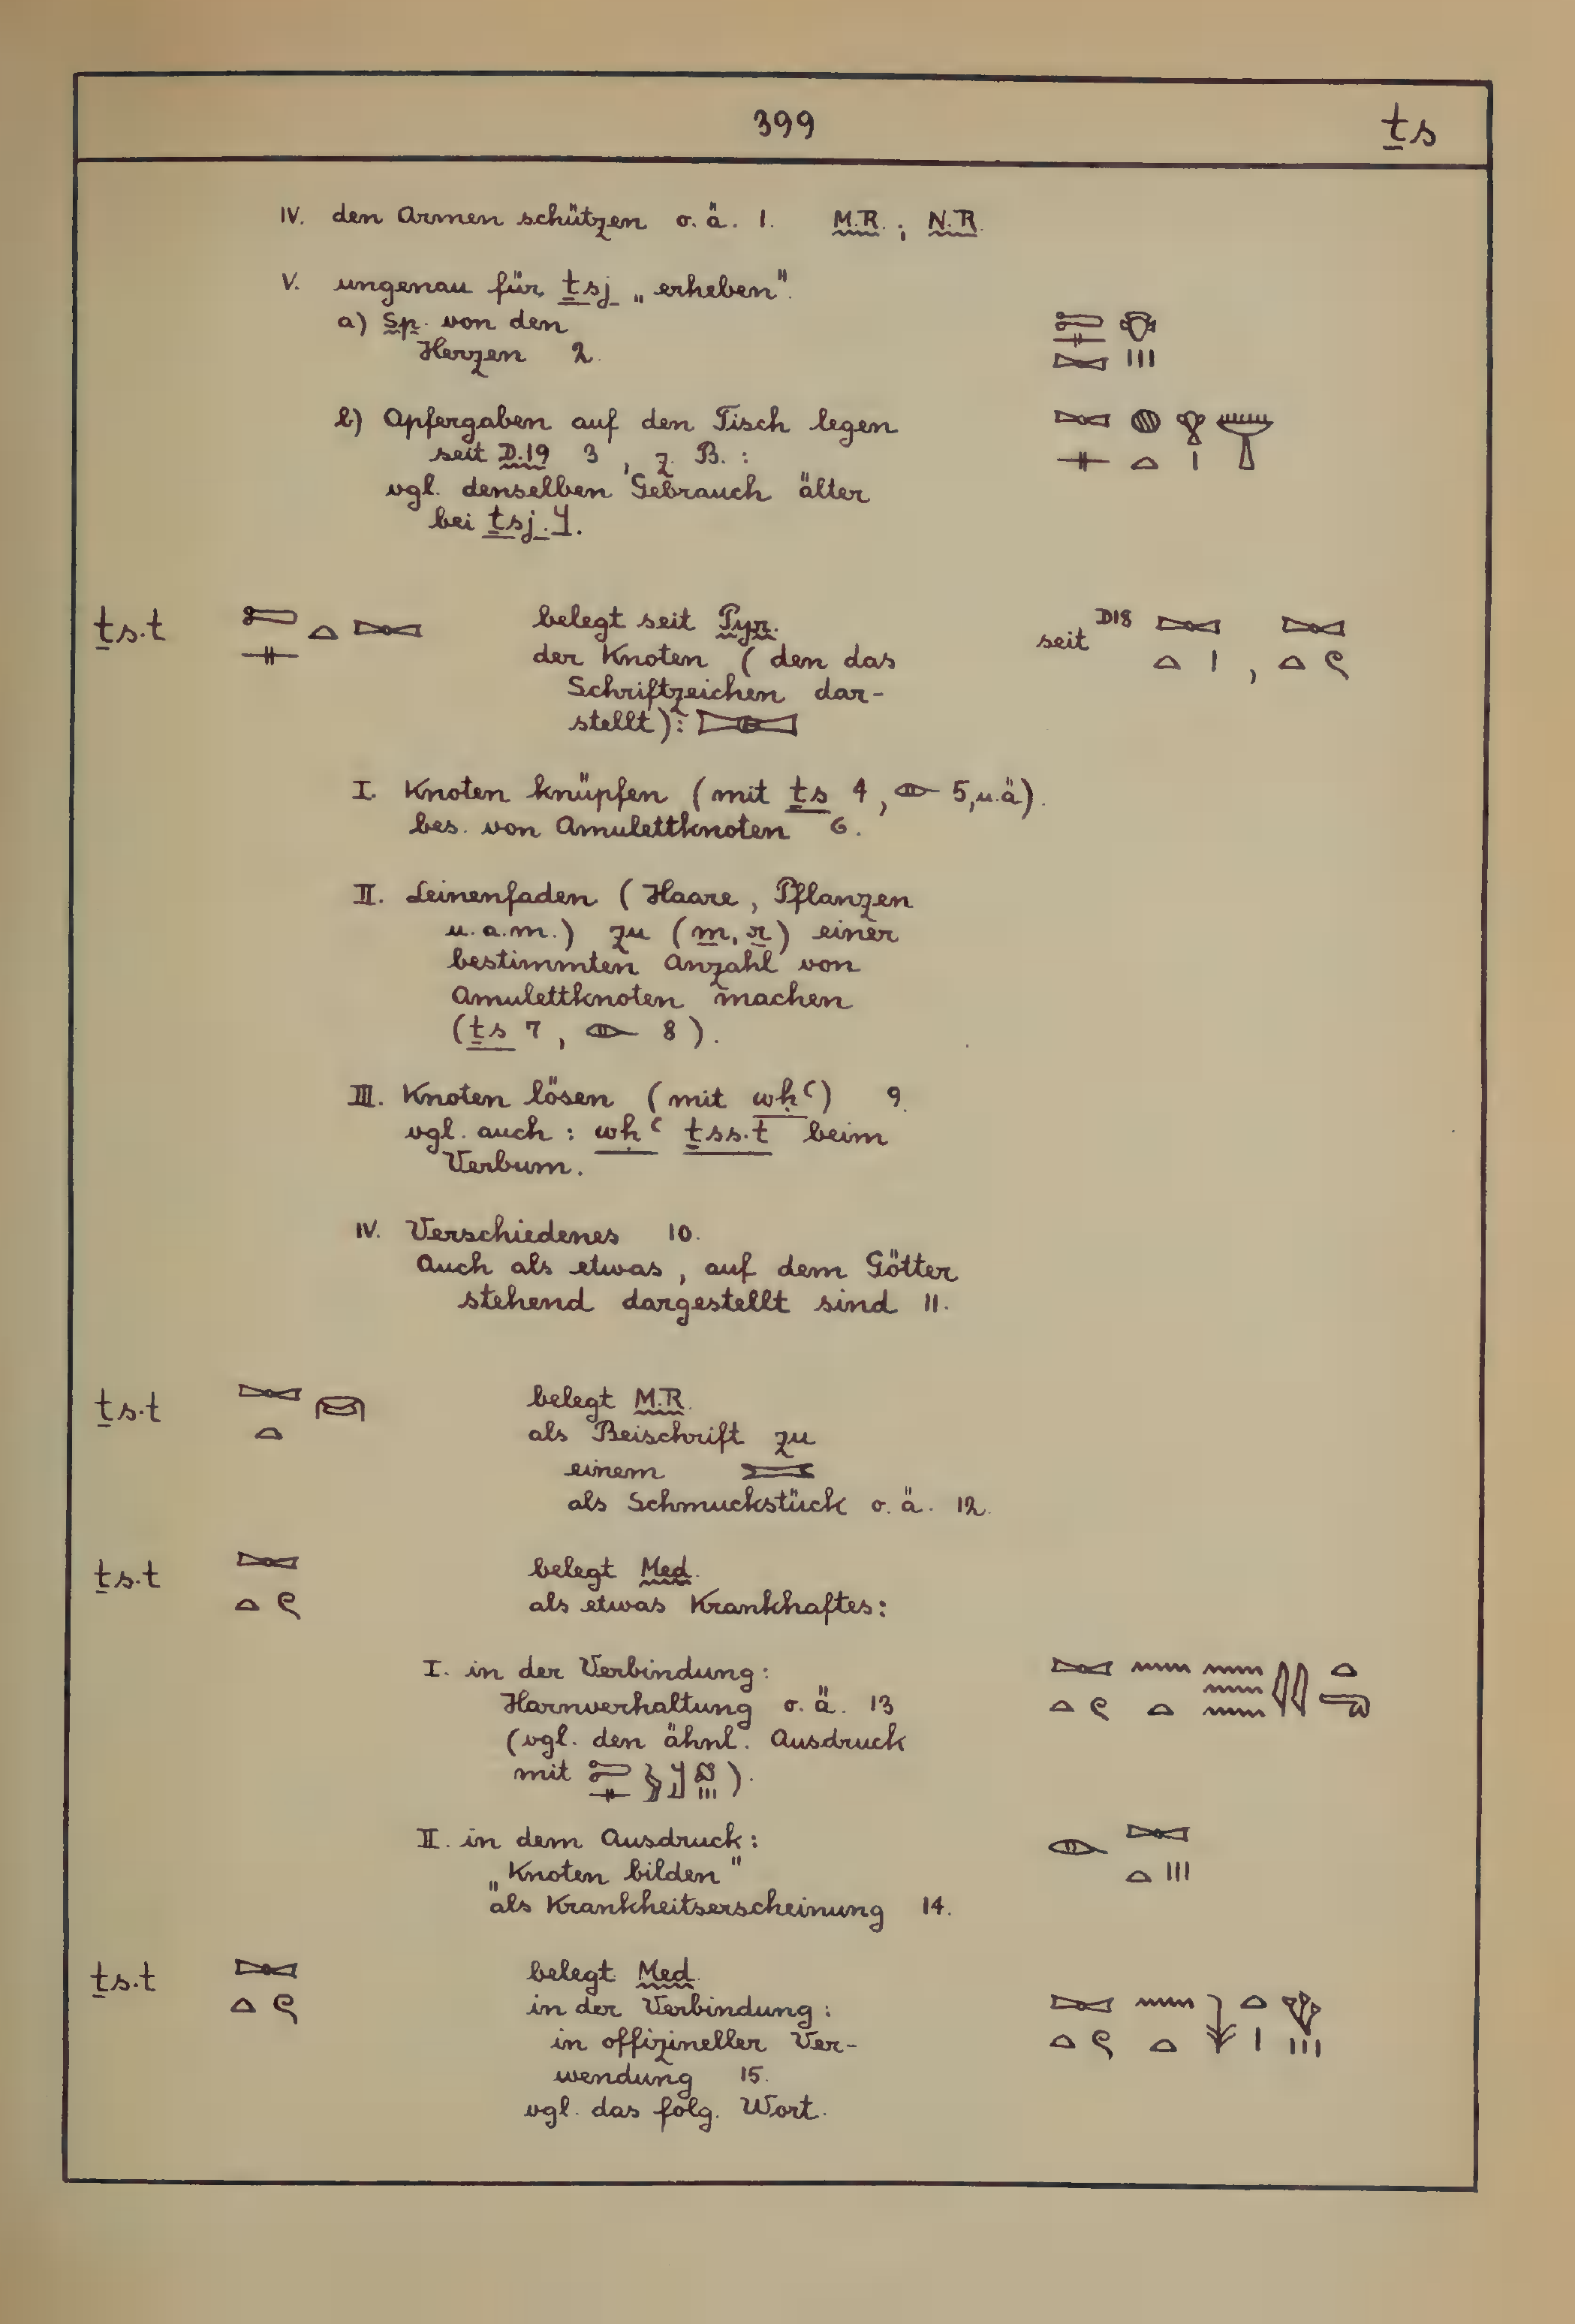 399 ṯs
IV. den Armen schützen o. ä. 1. M.R.; N.R.
V. ungenau für ṯsj „erheben".
a) Sp. von den
Herzen 2.
b) Opfergaben auf den Tisch legen
seit D.19 3, z. B.:
vgl. denselben Gebrauch älter
bei ṯsj.
ṯs.t belegt seit Pyr. seit D18
der Knoten (den das
Schriftzeichen dar-
stellt):
I. Knoten knüpfen (mit ṯs 4, 5, u.ä).
bes. von Amulettknoten 6.
II. Leinenfaden (Haare, Pflanzen
u. a. m.) zu (m, r) einer
bestimmten Anzahl von
Amulettknoten machen
(ṯs 7, 8).
III. Knoten lösen (mit wḥꜥ) 9.
vgl. auch: wḥꜥ ṯss.t beim
Verbum.
IV. Verschiedenes 10.
Auch als etwas, auf dem Götter
stehend dargestellt sind 11.
ṯs.t belegt M.R.
als Beischrift zu
einem
als Schmuckstück o. ä. 12.
ṯs.t belegt Med.
als etwas Krankhaftes:
I. in der Verbindung:
Harnverhaltung o. ä. 13
(vgl. den ähnl. Ausdruck
mit ).
II. in dem Ausdruck:
„Knoten bilden"
als Krankheitserscheinung 14.
ṯs.t belegt Med.
in der Verbindung:
in offizineller Ver-
wendung 15.
vgl. das folg. Wort.